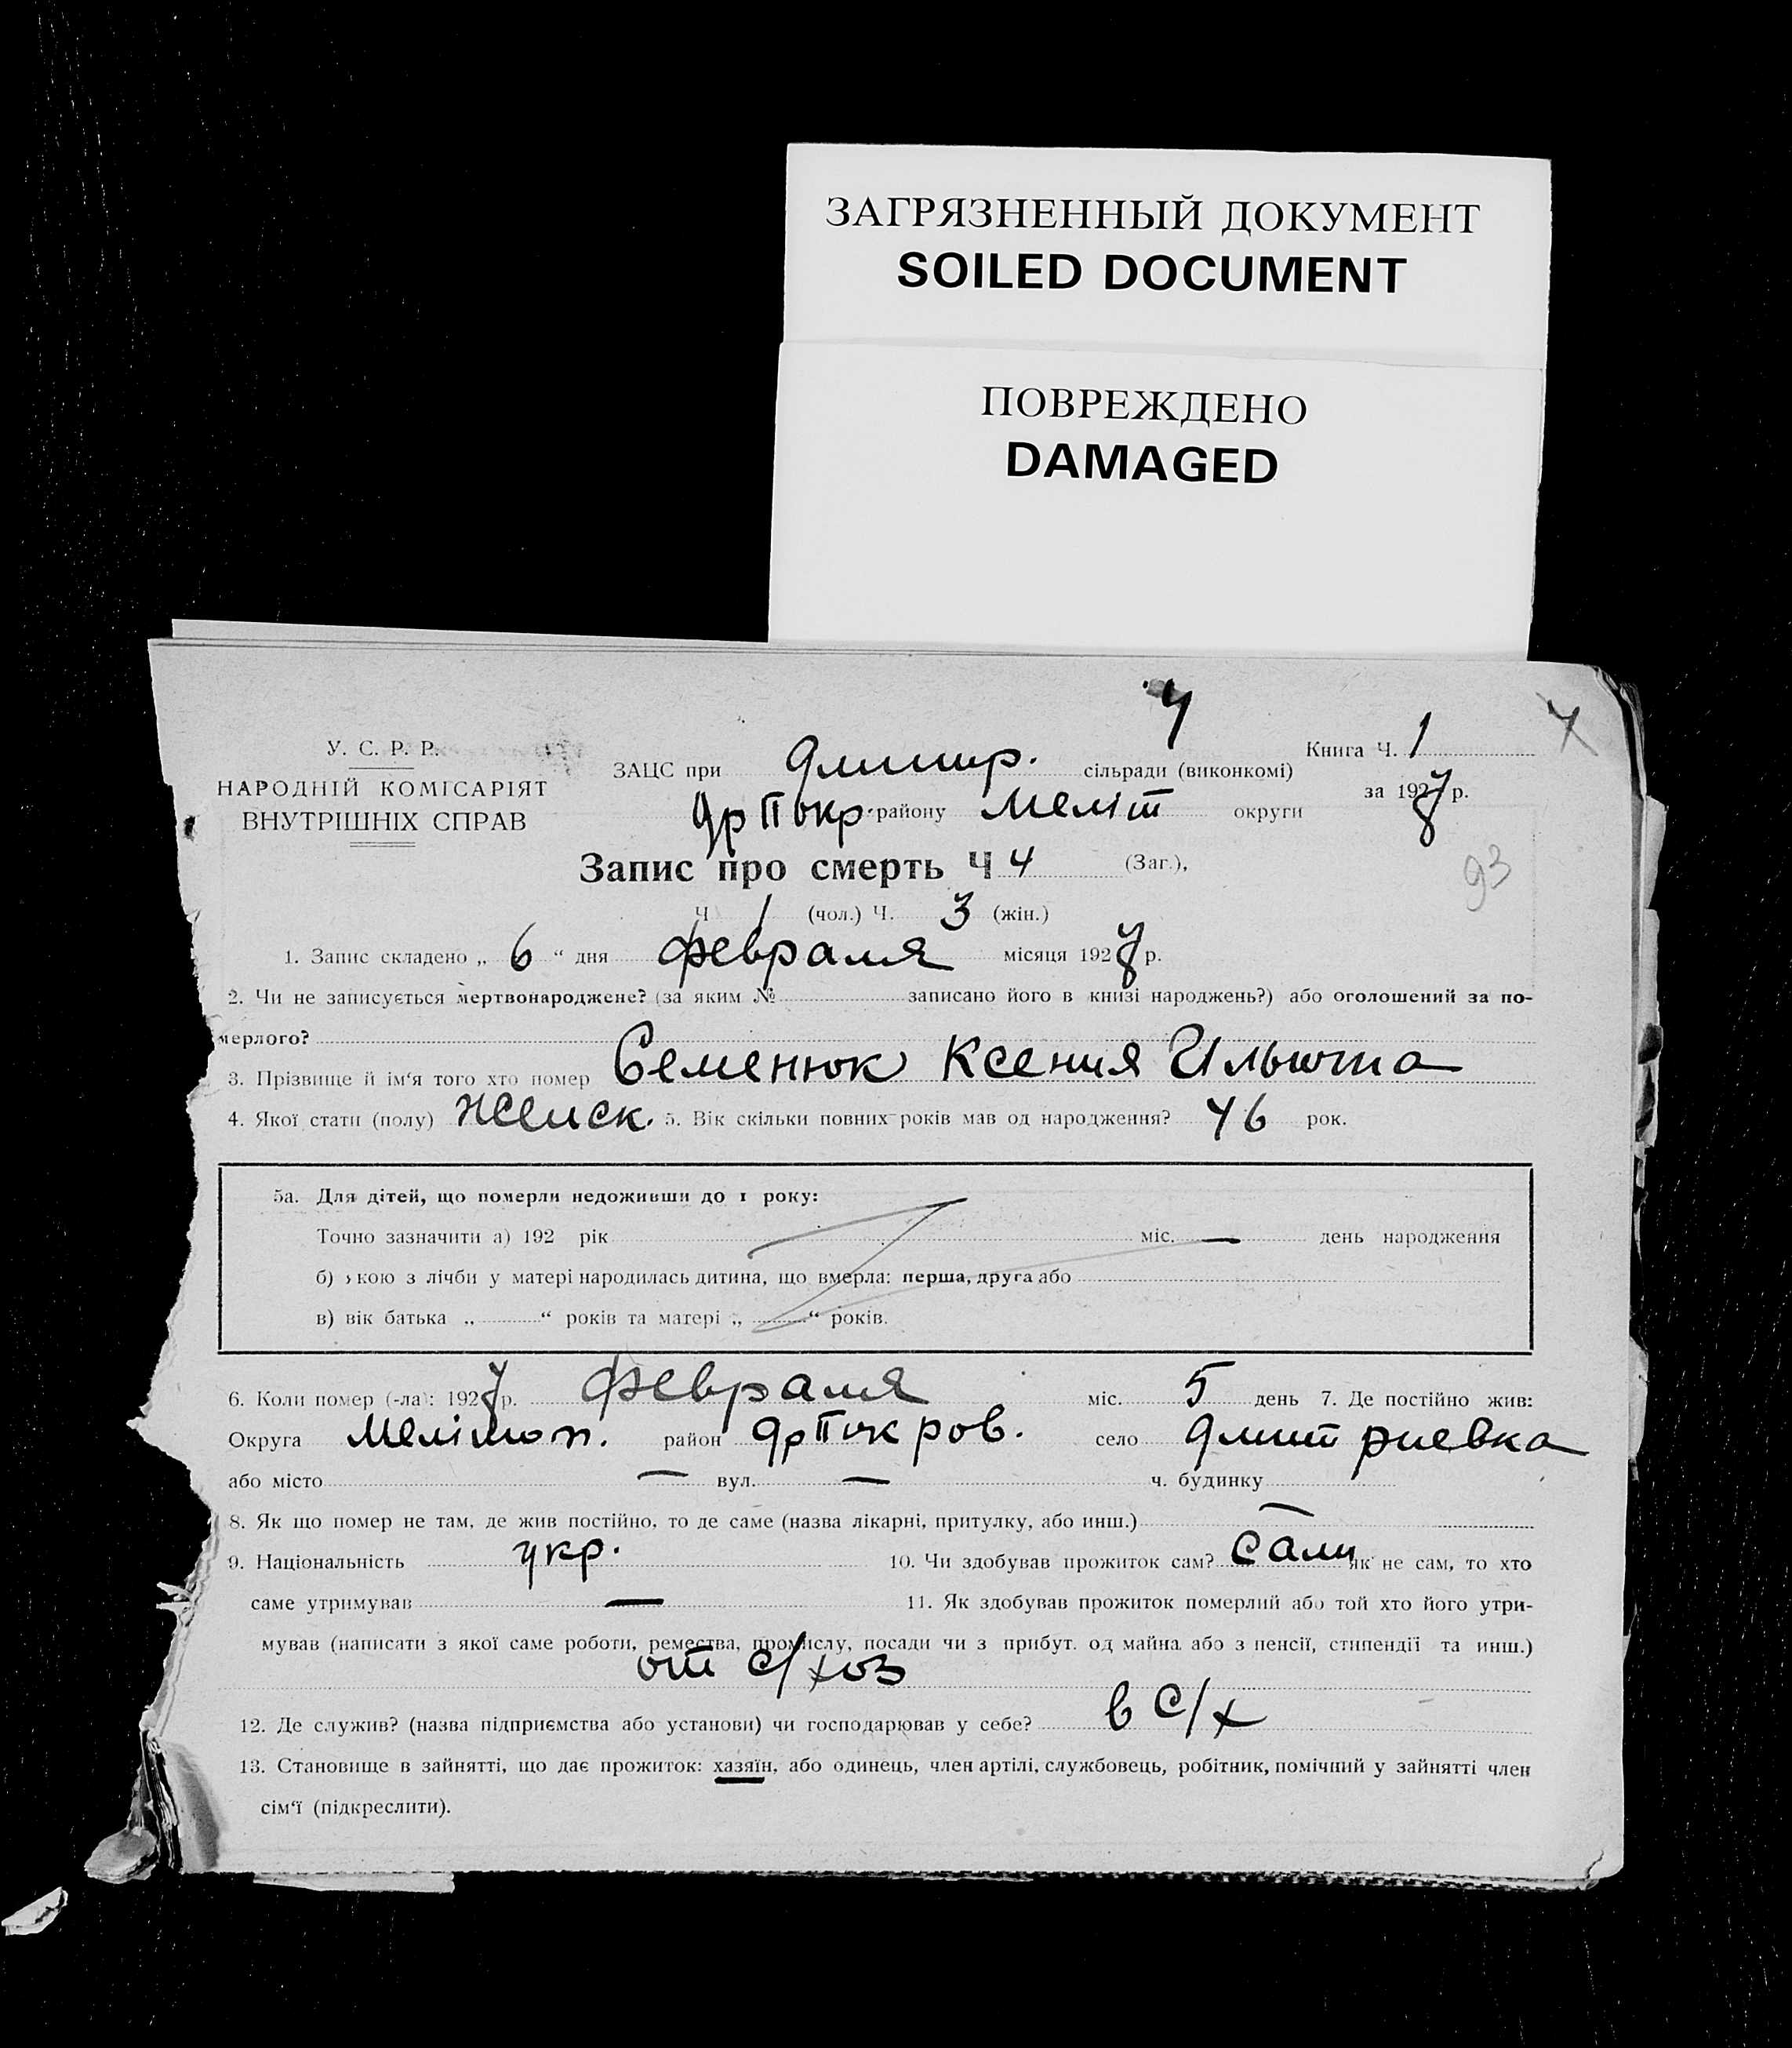 ЗАГРЯЗНЕННЫЙ ДОКУМЕНТ
SOILED DOCUMENT
ПОВРЕЖДЕНО
DAMAGED
4
У. С. Р. Р.
НАРОДНІЙ КОМІСАРІЯТ
ВНУТРІШНІХ СПРАВ
ЗАЦС при Дмитр. сільради (виконкомі)
Др Покр. району Меліт округи
Книга Ч. 1
за 1927 р.
Запис про смерть Ч 4 (Заг.),
93
Ч 1 (чол.) Ч. 3 (жін.)
1. Запис складено „ 6 “ дня февраля місяця 1927 р.
2. Чи не записується мертвонароджене? (за яким № записано його в книзі народжень?) або оголошений за по-
мерлого?
3. Прізвище й ім‘я того хто помер Семенюк Ксения
4. Якої стати (полу) женск. 5. Вік скільки повних років мав од народження? 46 рок.
5а. Для дітей, що померли недоживши до 1 року:
Точно зазначити а) 192 рік міс. — день народження
б) якою з лічби у матері народилась дитина, що вмерла: перша, друга або
в) вік батька „ “ років та матері „ “ років.
6. Коли помер (-ла): 1927 р. февраля міс. 5 день 7. Де постійно жив:
Округа Мелітоп. район Др Покров. село Дмитриевка
або місто — вул. — ч. будинку —
8. Як що помер не там, де жив постійно, то де саме (назва лікарні, притулку, або инш.)
9. Національність укр. 10. Чи здобував прожиток сам? сам як не сам, то хто
саме утримував — 11. Як здобував прожиток померлий або той хто його утри-
мував (написати з якої саме роботи, ремества, промислу, посади чи з прибут. од майна або з пенсії, стипендії та инш.)
от с/хоз
12. Де служив? (назва підприємства або установи) чи господарював у себе? в с/х
13. Становище в зайнятті, що дає прожиток: хазяїн, або одинець, член артілі, службовець, робітник, помічний у зайнятті член
сім‘ї (підкреслити).